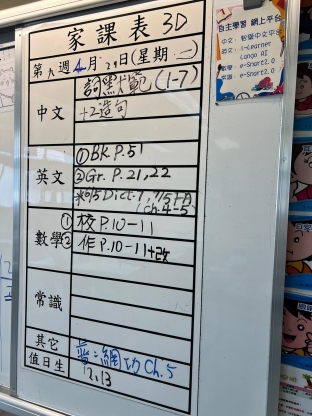 家課表 3D
第八週 4月21日(星期一)
中文
詞黑犬範(1-7)
+2造句
英文
①BK P.51
②Gr. P.21,22
數學
① 校P.10-11
② 作P.10-11+改
常識
其它
普:網功Ch.5
值日生
12,13
自主學習 網上平台
中文:智樂中文平台
英文:i-Learner
數學:e-Smart2.0
常識:e-Smart2.0